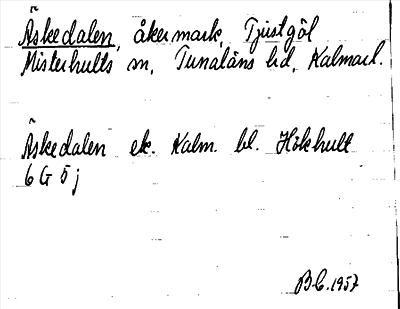 Äskedalen, åkermark, Tjustgöl
Misterhults sn, Tunaläns hd, Kalmarl.
Äskedalen ek. Kalm. bl. Hökhult
6 G 5 j
B.C. 1957